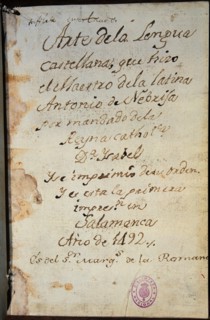 Arte de la Lengua
Castellana, que hizo
el Maestro de la latina
Antonio de Nebrija
por mandado de la
Reyna Catholca
Da Ysabel
Y se imprimió de su orden
Y es esta la primera
impresn en
Salamanca
Año de 1492.
Es del Sr Marqs de la Romana